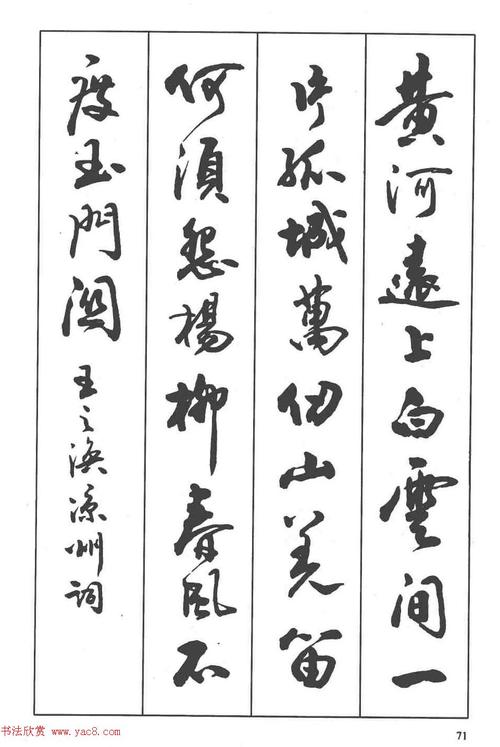 黄河遠上白雲间一
片孤城萬仞山羌笛
何須怨楊柳春風不
度玉門關
王之渙凉州詞
71
书法欣赏 www.yac8.com